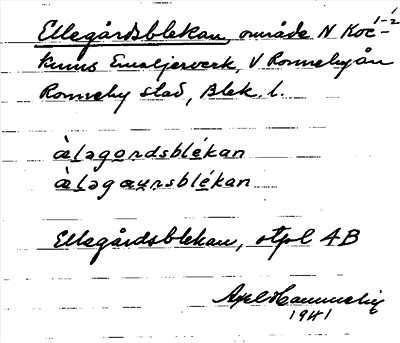 Ellegårdsblekan, område N Koc- 1-2
kums Emaljerverk, V Ronnebyån
Ronneby stad, Blek. l.
àləgordsblékan
àləgaursblékan
Ellegårdsblekan, stpl 4B
Axel Hammelig
1941